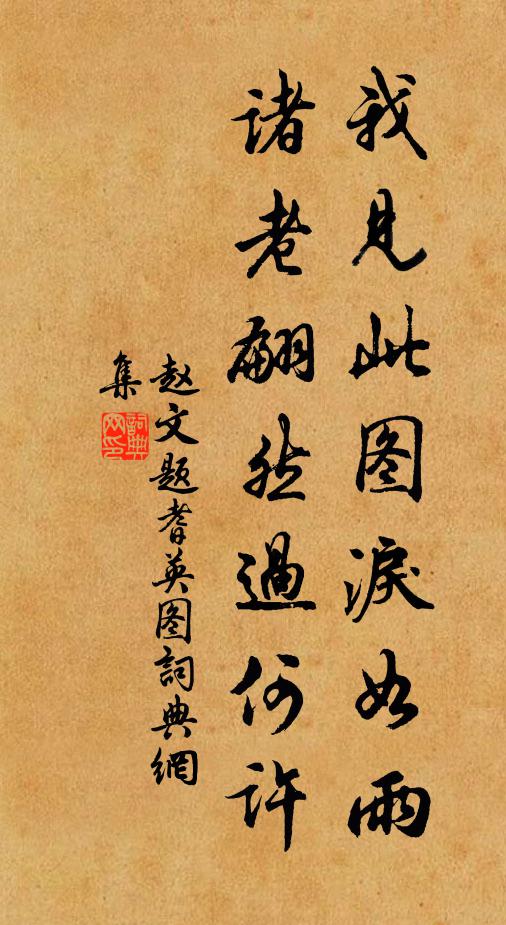 我见此图淚如雨
诸老翩然過何许
赵文题耆英图詞典網
集
詞典
网印